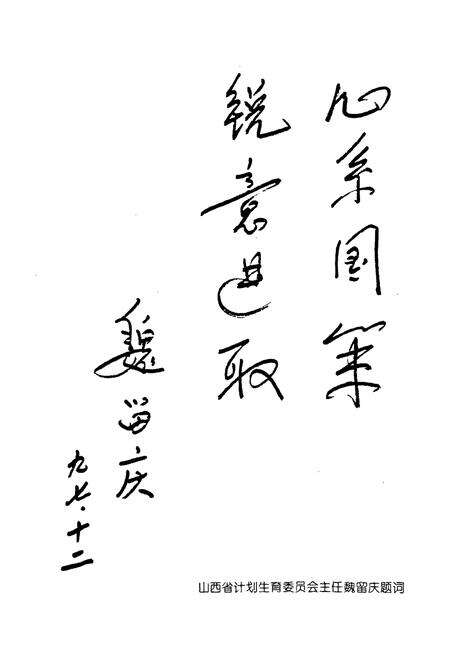 心系国策
锐意进取
魏留庆
九七·十二
山西省计划生育委员会主任魏留庆题词